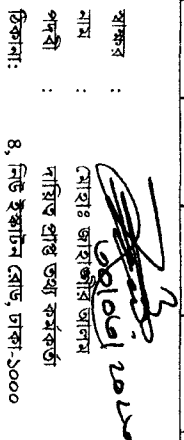 স্বাক্ষর :
নাম : মোহাঃ জাহাঙ্গীর আলম
পদবী : দায়িত্ব প্রাপ্ত তথ্য কর্মকর্তা
ঠিকানা: ৪, নিউ ইস্কাটন রোড, ঢাকা-১০০০